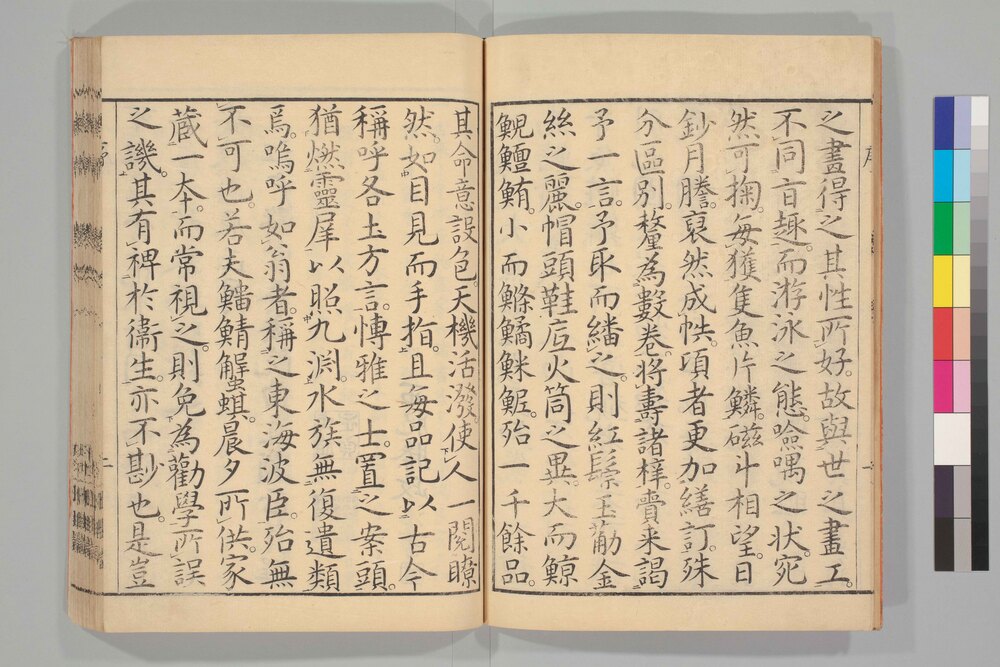 之畫得之其性所好。故與世之畫工。
不同旨趣。而游泳之態。噞喁之状。宛
然可掬。每獲隻魚片鱗。磁斗相望。日
鈔月謄。裒然成帙。項者更加繕訂。殊
分區別。釐為數卷。將壽諸梓。賷来謁
予一言。予取而繙之。則紅鬃玉䈥金
絲之麗。帽頭鞋底火筒之異。大而鯨
鯢鱣鮪。小而鰷鱊鮇䱉。殆一千餘品。
其命意設色。天機活潑。使人一閲瞭
然。如目見而手指。且每品記以古今
稱呼各土方言。愽雅之士。置之案頭。
猶燃靈犀以照九淵。水族無復遺類
焉。嗚呼如翁者。稱之東海波臣。殆無
不可也。若夫鱕鯖蠏蜞。晨夕所供。家
蔵一本。而常視之。則免為勸學所誤
之譏。其有裨於衞生。亦不尠也。是豈
序
一
序
二